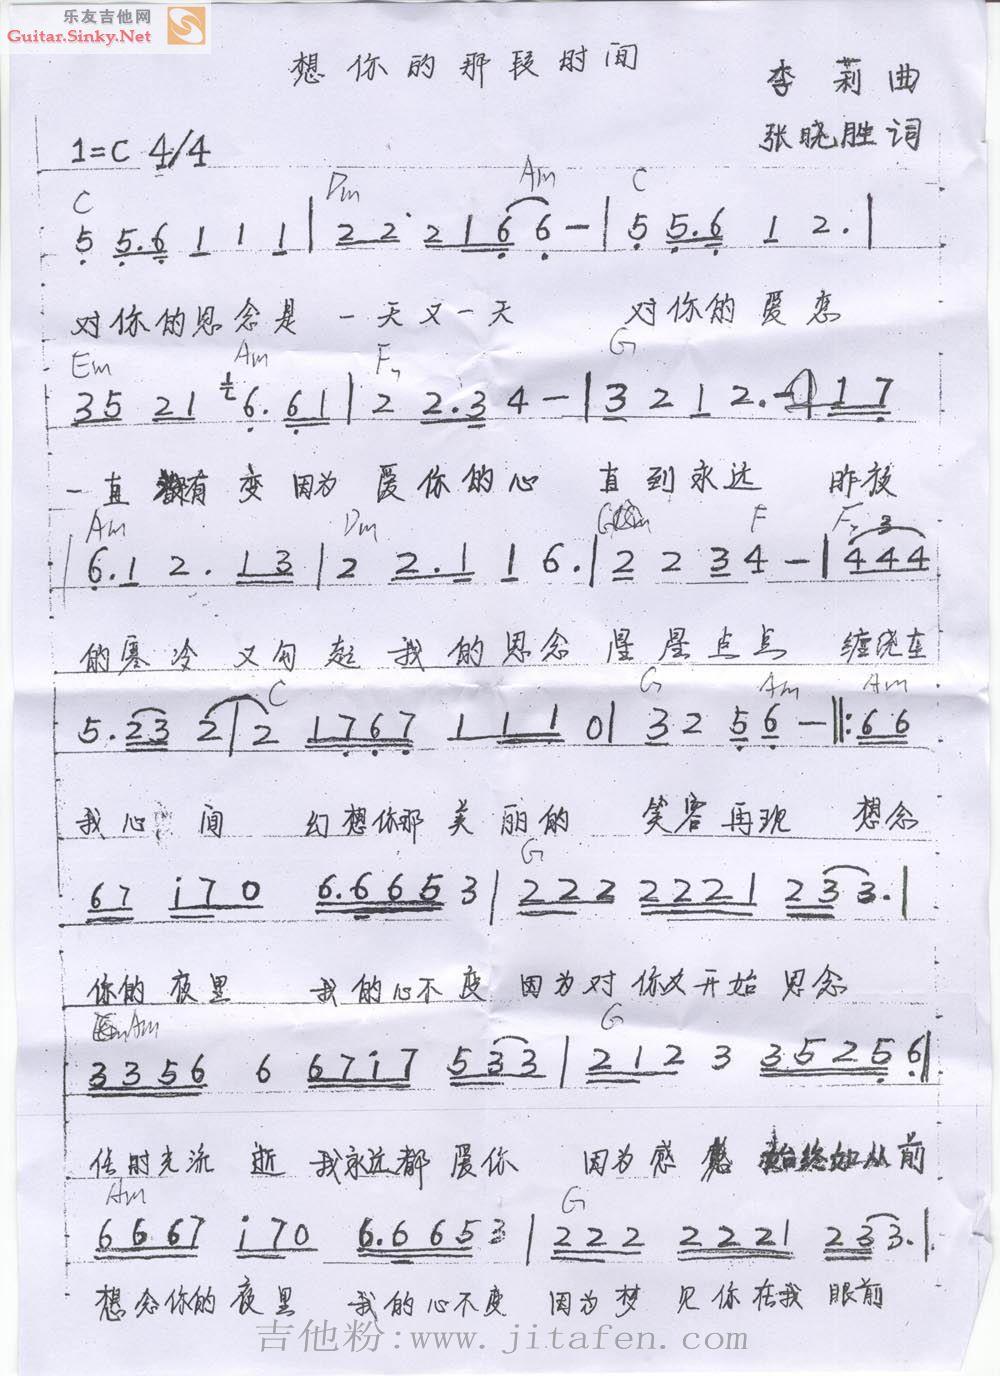 乐友吉他网
Guitar.Sinky.Net
想你的那段时间
李莉曲
1=C 4/4
张晓胜词
C Dm Am C
5 5.6 1 1 1 | 2 2· 2 1 6 6 - | 5 5.6 1 2. |
对你的思念是 一天又一天 对你的爱恋
Em Am F G
3 5 2 1 6. 6 1 | 2 2.3 4 - | 3 2 1 2. - | 1 7
一直有变因为爱你的心 直到永远 昨夜
Am Dm F F 3
| 6.1 2. 1 3 | 2 2.1 1 6. | 2 2 3 4 - | 4 4 4
的寒冷又勾起我的思念 星星点点 缠绕在
C G Am Am
5. 2 3 2 | 2 1 7 6 7 1 1 1 0 | 3 2 5 6 - ‖: 6 6
我心间 幻想你那美丽的 笑容再现 想念
G
6 7 i 7 0 6. 6 6 5 3 | 2 2 2 2 2 2 1 2 3 3. |
你的夜里 我的心不变 因为对你又开始思念
Am G
3 3 5 6 6 6 7 i 7 5 3 3 | 2 1 2 3 3 5 2 5 6 ‖
任时光流逝 我永远都爱你 因为感 始终如从前
Am G
6 6 6 7 i 7 0 6. 6 6 5 3 | 2 2 2 2 2 2 1 2 3 3. |
想念你的夜里 我的心不变 因为梦见你在我眼前
吉他粉:www.jitafen.com